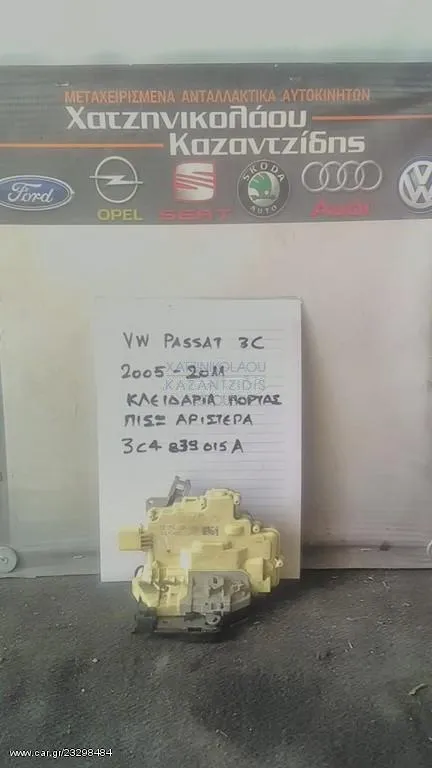 ΜΕΤΑΧΕΙΡΙΣΜΕΝΑ ΑΝΤΑΛΛΑΚΤΙΚΑ ΑΥΤΟΚΙΝΗΤΩΝ
Χατζηνικολάου
Καζαντζίδης
Ford
OPEL
SEAT
SKODA
AUTO
Audi
VW PASSAT 3C
XATZINIKOLAOU
2005 - 2011
KAZANTZIDIS
ΚΛΕΙΔΑΡΙΑ ΠΟΡΤΑΣ
ΠΙΣΩ ΑΡΙΣΤΕΡΑ
3C4 839 015 A
www.car.gr/23298484